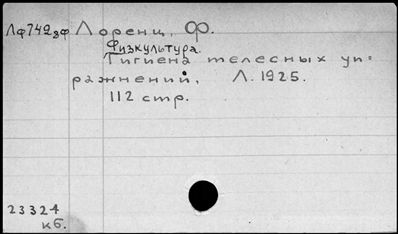 Лф742зф Лоренц, Ф.
Физкультура.
Гигиена телесных уп=
ражнений. Л. 1925.
112 стр.
23324
кб.